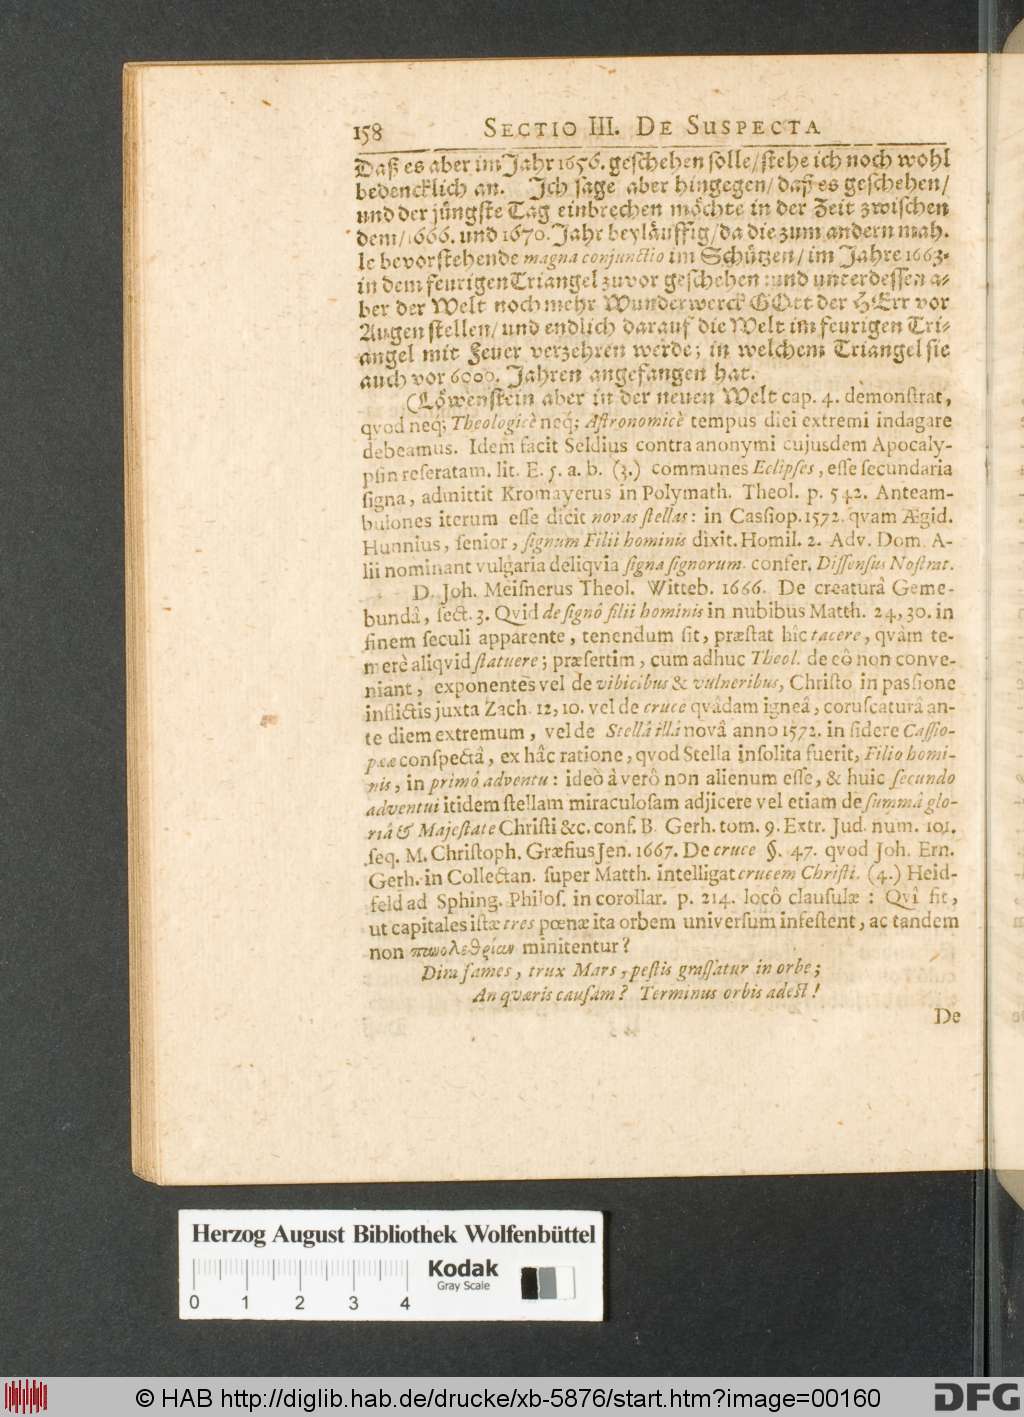 158 SECTIO III. DE SUSPECTA
Daß es aber im Jahr 1656. geschehen solle/ stehe ich noch wohl
bedencklich an. Ich sage aber hingegen/ daß es geschehen/
und der jüngste Tag einbrechen möchte in der Zeit zwischen
dem/ 1666. und 1670. Jahr beyläuffig/ da die zum andern mah-
le bevorstehende magna conjunctio im Schützen/ im Jahre 1663.
in dem feurigen Triangel zuvor geschehen: und unterdessen a-
ber der Welt noch mehr Wunderwerck GOtt der HErr vor
Augen stellen/ und endlich darauf die Welt im feurigen Tri-
angel mit Feuer verzehren werde; in welchem Triangel sie
auch vor 6000. Jahren angefangen hat.
(Löwenstein aber in der neuen Welt cap. 4. demonstrat,
qvod neq; Theologicè neq; Astronomicè tempus diei extremi indagare
debeamus. Idem facit Seldius contra anonymi cujusdem Apocaly-
psin reseratam. lit. E. 5. a. b. (3.) communes Eclipses, esse secundaria
signa, admittit Kromayerus in Polymath. Theol. p. 542. Anteam-
bulones iterum esse dicit novas stellas: in Cassiop. 1572. qvam Ægid.
Hunnius, senior, signum Filii hominis dixit. Homil. 2. Adv. Dom. A-
lii nominant vulgaria deliqvia signa signorum. confer. Dissensus Nostrat.
D. Joh. Meisnerus Theol. Witteb. 1666. De creaturâ Geme-
bundâ, sect. 3. Qvid de signô filii hominis in nubibus Matth. 24, 30. in
finem seculi apparente, tenendum sit, præstat hîc tacere, qvàm te-
merè aliqvid statuere; præsertim, cum adhuc Theol. de eô non conve-
niant, exponentes vel de vibicibus & vulneribus, Christo in passione
inflictis juxta Zach. 12, 10. vel de cruce qvâdam igneâ, coruscaturâ an-
te diem extremum, vel de Stellâ illâ novâ anno 1572. in sidere Cassio-
pææ conspectâ, ex hâc ratione, qvod Stella insolita fuerit, Filio homi-
nis, in primô adventu: ideò â verô non alienum esse, & huic secundo
adventui itidem stellam miraculosam adjicere vel etiam de summâ glo-
riâ & Majestate Christi &c. conf. B. Gerh. tom. 9. Extr. Jud. num. 101.
seq. M. Christoph. Græfius Jen. 1667. De cruce §. 47. qvod Joh. Ern.
Gerh. in Collectan. super Matth. intelligat crucem Christi. (4.) Heid-
feld ad Sphing. Philos. in corollar. p. 214. locô clausulæ: Qvî fit,
ut capitales istæ tres pœnæ ita orbem universum infestent, ac tandem
non πανολεθρίαν minitentur?
Dira fames, trux Mars, pestis grassatur in orbe;
An qværis causam? Terminus orbis adest!
De
Herzog August Bibliothek Wolfenbüttel
Kodak
Gray Scale
0 1 2 3 4
© HAB http://diglib.hab.de/drucke/xb-5876/start.htm?image=00160
DFG